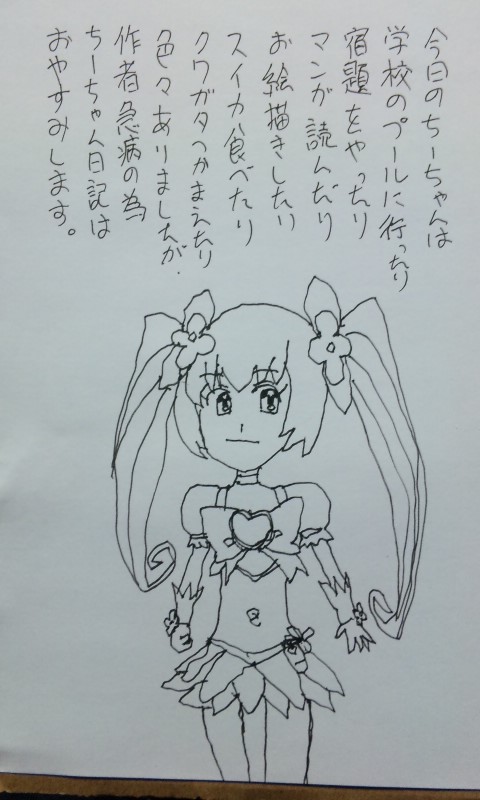 今日のちーちゃんは
学校のプールに行ったり
宿題をやったり
マンガ読んだり
お絵描きしたり
スイカ食べたり
クワガタつかまえたり
色々ありましたが、
作者急病の為
ちーちゃん日記は
おやすみします。